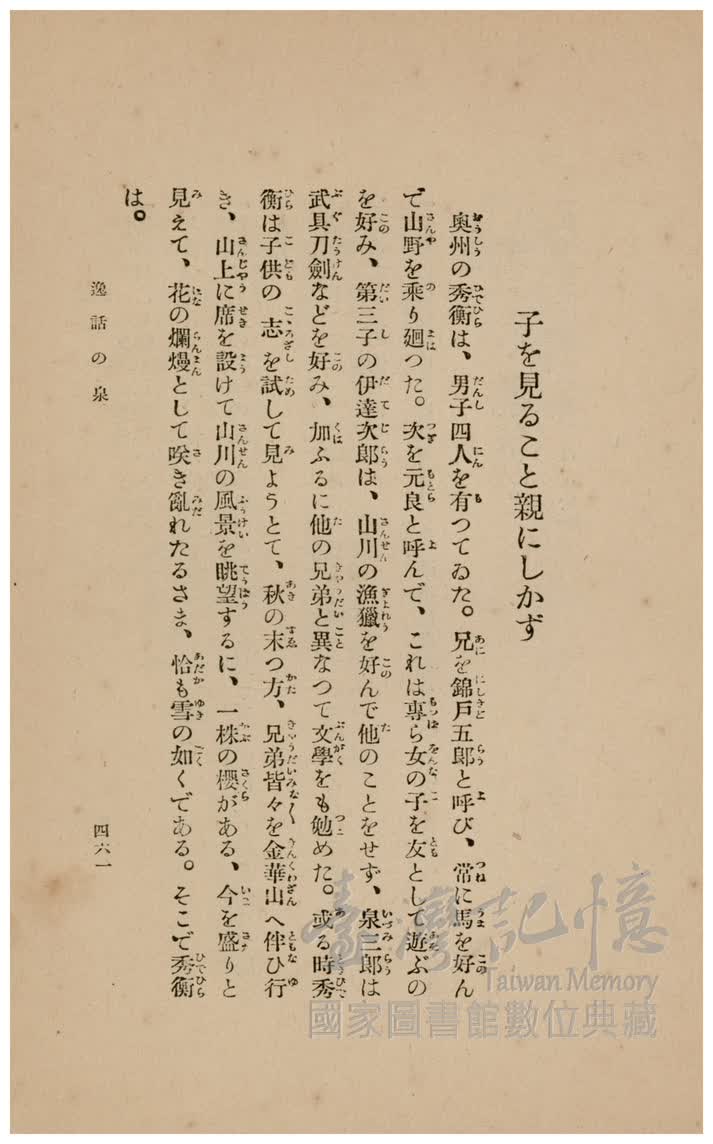 子を見ること親にしかず
奧州の秀衡は、男子四人を有つてゐた。兄を錦戸五郎と呼び、常に馬を好ん
で山野を乘り廻つた。次を元良と呼んで、これは專ら女の子を友として遊ぶの
を好み、第三子の伊達次郎は、山川の漁獵を好んで他のことをせず、泉三郎は
武具刀劍などを好み、加ふるに他の兄弟と異なつて文學をも勉めた。或る時秀
衡は子供の志を試して見ようとて、秋の末つ方、兄弟皆々を金華山へ伴ひ行
き、山上に席を設けて山川の風景を眺望するに、一株の櫻がある、今を盛りと
見えて、花の爛熳として咲き亂れたるさま、恰も雪の如くである。そこで秀衡
は。
逸話の泉
四六一
臺灣記憶
Taiwan Memory
國家圖書館數位典藏